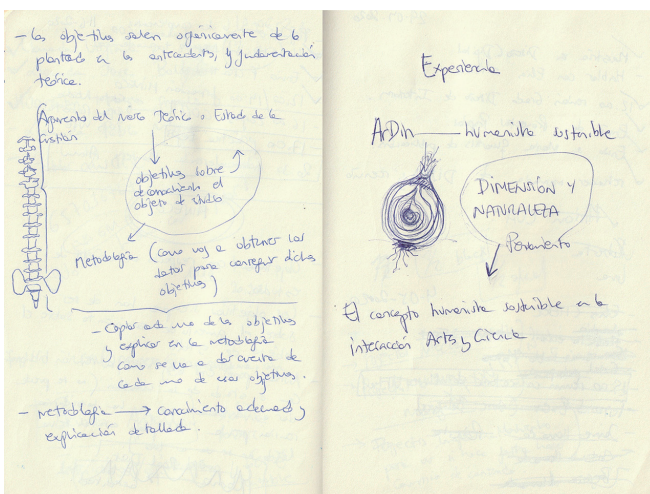 - Los objetivos salen orgánicamente de lo
plantado en los antecedentes, y fundamentación
teórica.
Argumento del Marco Teórico o Estado de la
Cuestión
objetivos sobre
desconocimiento el
objeto de studio
Metodología (como voy a obtener los
datos para conseguir dichos
objetivos)
- Copiar cada uno de los objetivos
y explicar en la metodología
como se va a dar cuenta de
cada uno de esos objetivos.
- Metodología → conocimiento adecuado y
explicación detallada.
Experiencia
ArDin humanista sostenible
DIMENSIÓN Y
NATURALEZA
Pensamento
El concepto humanista sostenible en la
interacción Arts y Ciencia